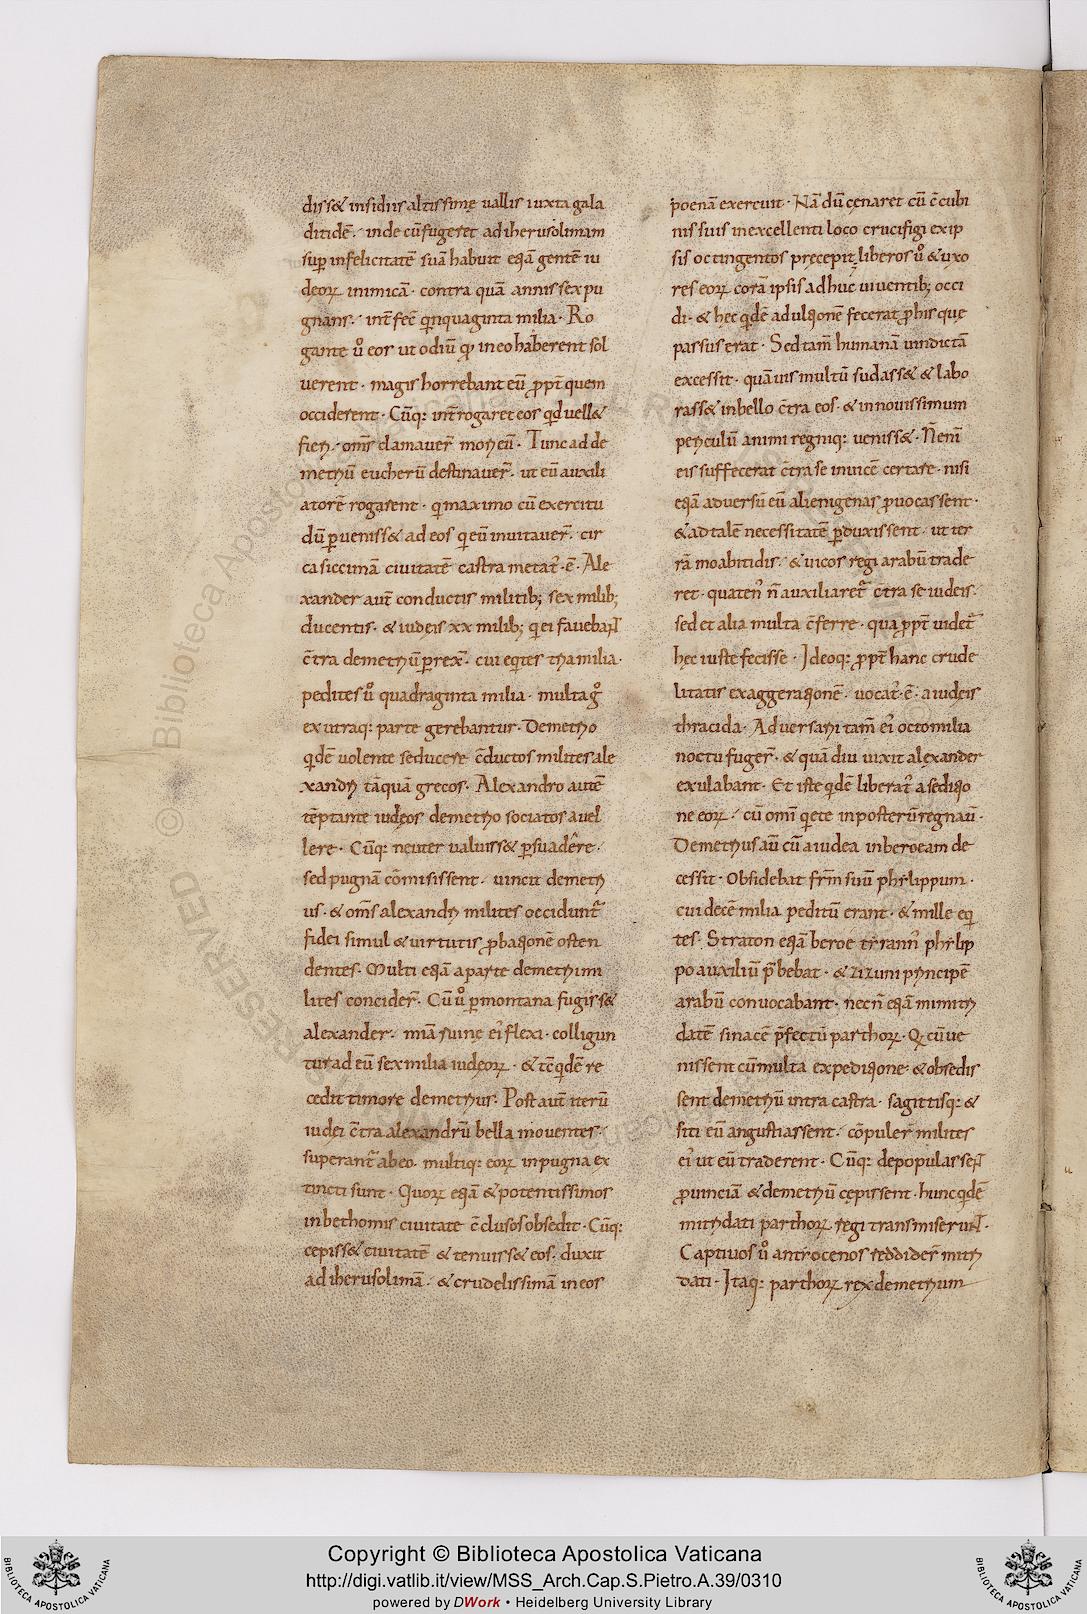 diss& insidiis altissimę uallis iuxta gala
ditidē. inde cū fugeret ad iherusolimam
suꝑ infelicitatē suā habuit eqꝫā gentē iu
dęoꝝ inimicā · contra quā annis sex pu
gnans. int̄fec̄ qinquaginta milia · Ro
gante ů eos ut odiū qđ in eo haberent sol
uerent · magis horrebant eū ꝓpt̄ quem
occiderent · Cūq: int̄rogaret eos qd uell&
fieri. om̄s clamauer̄ mori eū · Tunc ad de
metriū eucherū destinauer̄ · ut eū auxili
atorē rogarent · qi maximo cū exercitu
dū ꝑueniss& ad eos qi eū inuitauer̄ · cir
ca siccimā ciuitatē castra metat᷒ · ē · Ale
xander aut̄ conductis militib; sex milib;
ducentis · & iudeis xx milib; qi ei fauebant
c̄tra demetriū ꝑrex̄ · cui eqites tria milia ·
pedites ů quadraginta milia · multa gͦ
ex utraq: parte gerebantur · Demetrio
qdē uolente seducere c̄ductos milites ale
xandri tāquā grecos · Alexandro autē
tēptante iudęos demetrio sociatos auel
lere · Cūq: neuter ualuiss& ꝑsuadere ·
sed pugnā cōmisissent · uincit demetri
us · & om̄s alexandri milites occidunt᷒
fidei simul & uirtutis ꝓbationē osten
dentes · Multi eqꝫā a parte demetrii mi
lites concider̄ · Cū ů ꝑ montana fugiss&
alexander · miā ruinę ei᷒ flexi · colligun
tur ad eū sex milia iudęoꝝ · & tc̄ qdē re
cedit timore demetrius · Post aut̄ iterū
iudei c̄tra alexandrū bella mouentes ·
superant᷒ ab eo · multiq: eoꝝ in pugna ex
tincti sunt · Quoꝝ eqꝫā & potentissimos
in bethomis ciuitate c̄clusos obsedit · Cūq:
cepiss& ciuitatē & tenuiss& eos · duxit
ad iherusolimā · & crudelissimā in eos
poenā exercuit · Nā dū cęnaret cū c̄cubi
nis suis in excellenti loco crucifigi ex ip
sis octingentos pręcepit. liberos ů & uxo
res eoꝝ corā ipsis adhuc uiuentib; occi
di · & hec qdē ad ultionē fecerat ꝓ his que
passus erat · Sed tam̄ humanā uindictā
excessit · quāuis multū sudass& & labo
rass& in bello c̄tra eos · & in nouissimum
periculū animi regniq: ueniss& · N̄ enī
eis suffecerat c̄tra se inuicē certare · nisi
eqꝫā aduersū eū alienigenas ꝓuocassent ·
& ad talē necessitatē ꝑduxissent · ut ter
rā moabitidis · & uicos regi arabū trade
ret · quaten᷒ n̄ auxiliaret᷒ c̄tra se iudeis ·
sed et alia multa c̄ferre · qua ꝓpt̄ uidet᷒
hec iuste fecisse · Ideoq: ꝓpt̄ hanc crude
litatis exaggerationē · uocat᷒ · ē · a iudeis
thracida · Aduersarii tam̄ ei᷒ octo milia
noctu fuger̄ · & quā diu uixit alexander
exulabant · Et iste qdē liberat᷒ a seditio
ne eoꝝ · cū omī qiete in posterū regnauit ·
Demetrius aū cū a iudea in beroeam de
cessit · Obsidebat frm̄ suū philippum ·
cui decē milia peditū erant · & mille eqi
tes · Straton eqꝫā beroe tirann᷒ philip
po auxiliū p̄bebat · & zizum principē
arabū conuocabant · necn̄ eqꝫā mimitri
datē sinacē p̄fectū parthoꝝ · Qi cū ue
nissent cū multa expeditione · & obsedis
sent demetriū intra castra · sagittisq: &
siti eū angustiassent · cōpuler̄ milites
ei᷒ ut eū traderent · Cūq: depopulassent
ꝓuinciā & demetriū cępissent · hunc qdē
mitridati parthoꝝ regi transmiserunt ·
Captiuos ů antiocenos reddider̄ mitri
dati · Itaq: parthoꝝ rex demetrium
Copyright © Biblioteca Apostolica Vaticana
http://digi.vatlib.it/view/MSS_Arch.Cap.S.Pietro.A.39/0310
powered by DWork • Heidelberg University Library